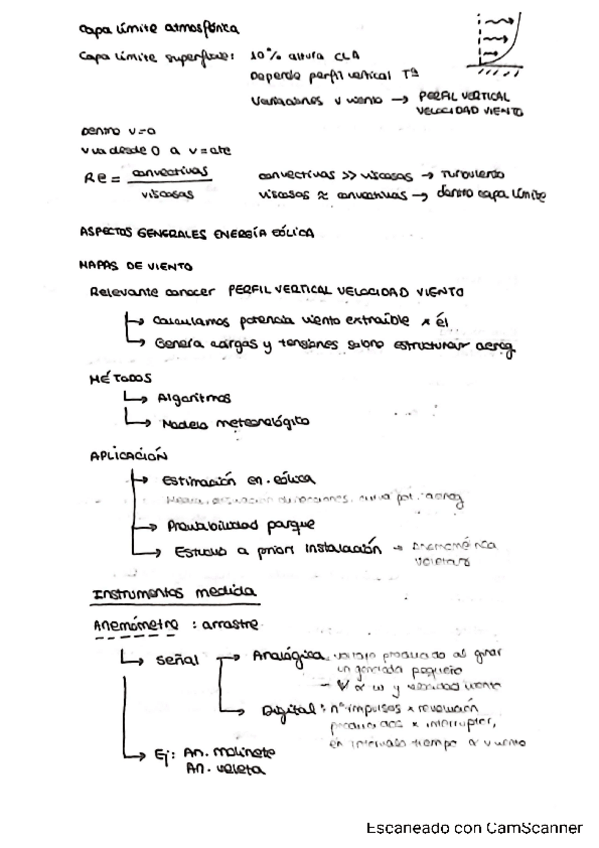 Capa límite atmosférica
Capa límite superficie: 10% altura CLA
Depende perfil vertical Tª
Variaciones v viento → PERFIL VERTICAL
VELOCIDAD VIENTO
Dentro v=0
v va desde 0 a v=cte
Re = convectivas / viscosas
convectivas >> viscosas → Turbulento
viscosas ≈ convectivas → dentro capa límite
ASPECTOS GENERALES ENERGÍA EÓLICA
MAPAS DE VIENTO
Relevante conocer PERFIL VERTICAL VELOCIDAD VIENTO
↳ Calculamos potencia viento extraíble x él
↳ Genera cargas y tensiones sobre aerog.
MÉTODOS
↳ Algoritmos
↳ Modelo meteorológico
APLICACIÓN
→ Estimación en. eólica
pot. aerog
→ parque
↳ Estudio a priori instalación →
veletas
Instrumentos medida
Anemómetro : arrastre
↳ señal → Analógica voltaje producido al girar
un pequeño
y velocidad viento
↳ Digital: nº impulsos x revolución
x interruptor,
en intervalo tiempo α v viento
↳ Ej: An. molinete
An. veleta
Escaneado con CamScanner